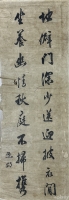 地僻門深少送迎披衣閒
坐養幽情秋庭不掃携